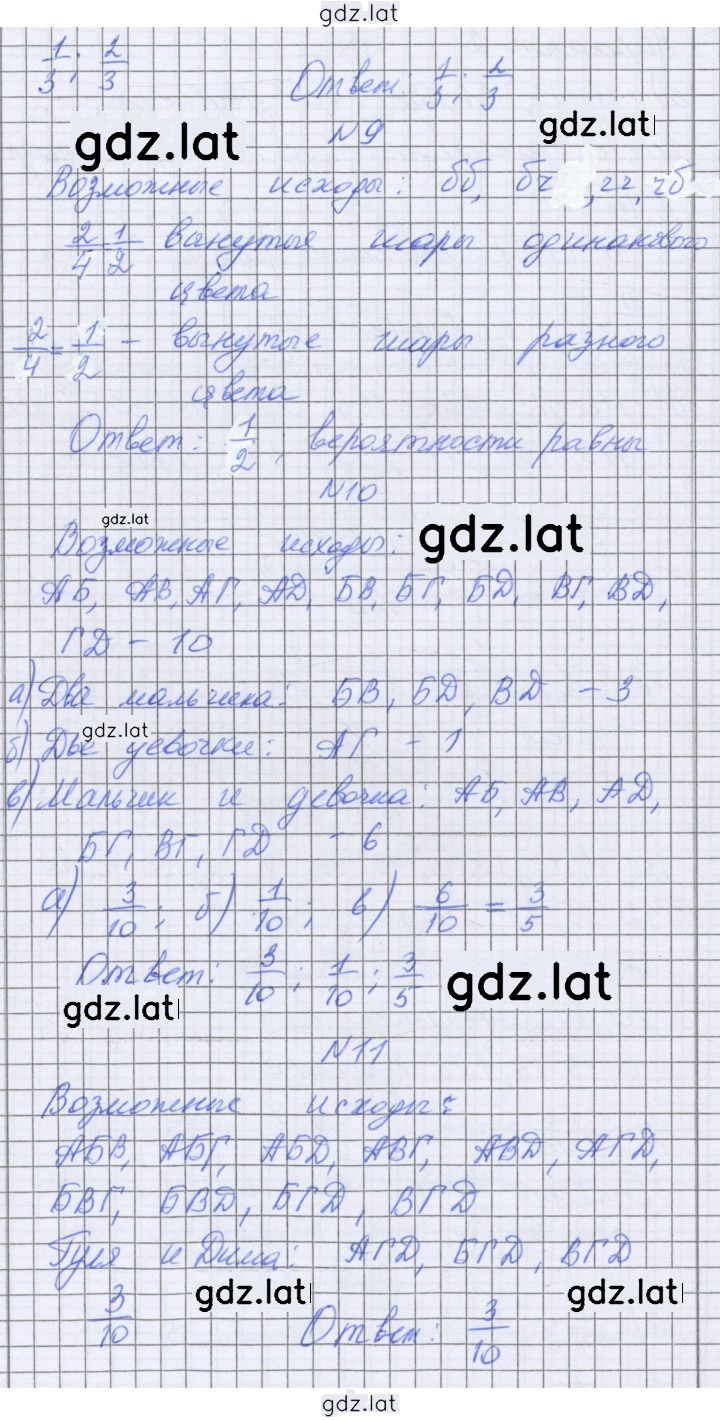 gdz.lat
1/3; 2/3
Ответ: 1/3; 2/3
gdz.lat
gdz.lat
N9
Возможные исходы: бб, бч, чч, чб
2/4 1/2 ванутые шары одинакового
цвета
2/4 = 1/2 - вынутые шары разного
цвета
Ответ: 1/2; вероятности равны
N10
gdz.lat
gdz.lat
Возможные исходы:
АБ, АВ, АГ, АД, БВ, БГ, БД, ВГ, ВД,
ГД - 10
а) Два мальчика: БВ, БД, ВД - 3
gdz.lat
б) Две девочки: АГ - 1
в) Мальчик и девочка: АБ, АВ, АД,
БГ, ВГ, ГД - 6
а) 3/10; б) 1/10; в) 6/10 = 3/5
Ответ: 3/10; 1/10; 3/5
gdz.lat
gdz.lat
N11
Возможные исходы:
АБВ, АБГ, АБД, АВГ, АВД, АГД,
БВГ, БВД, БГД, ВГД
Гуля и Дима: АГД, БГД, ВГД
gdz.lat
gdz.lat
3/10
Ответ: 3/10
gdz.lat